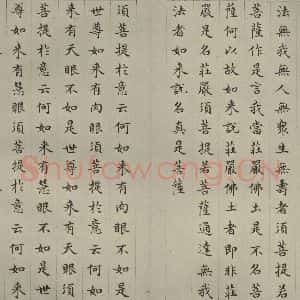 法無我無人無衆生無壽者須菩提若
菩薩作是言我當莊嚴佛土是不名菩
薩何以故如來說莊嚴佛土者即非莊
嚴是名莊嚴須菩提若菩薩通達無我
法者如來說名真是菩薩
須菩提於意云何如來有肉眼不如是
世尊如來有肉眼須菩提於意云何如
來有天眼不如是世尊如來有天眼須
菩提於意云何如來有慧眼不如是世
尊如來有慧眼須菩提於意云何如來
Shufawang.CN